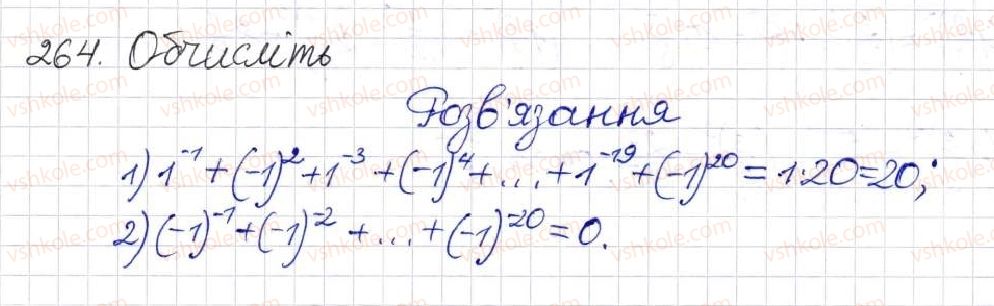 264. Обчисліть
Розв'язання
1) 1⁻¹ + (-1)² + 1⁻³ + (-1)⁴ + ... + 1⁻¹⁹ + (-1)²⁰ = 1·20 = 20;
2) (-1)⁻¹ + (-1)⁻² + ... + (-1)⁻²⁰ = 0.
vshkole.com